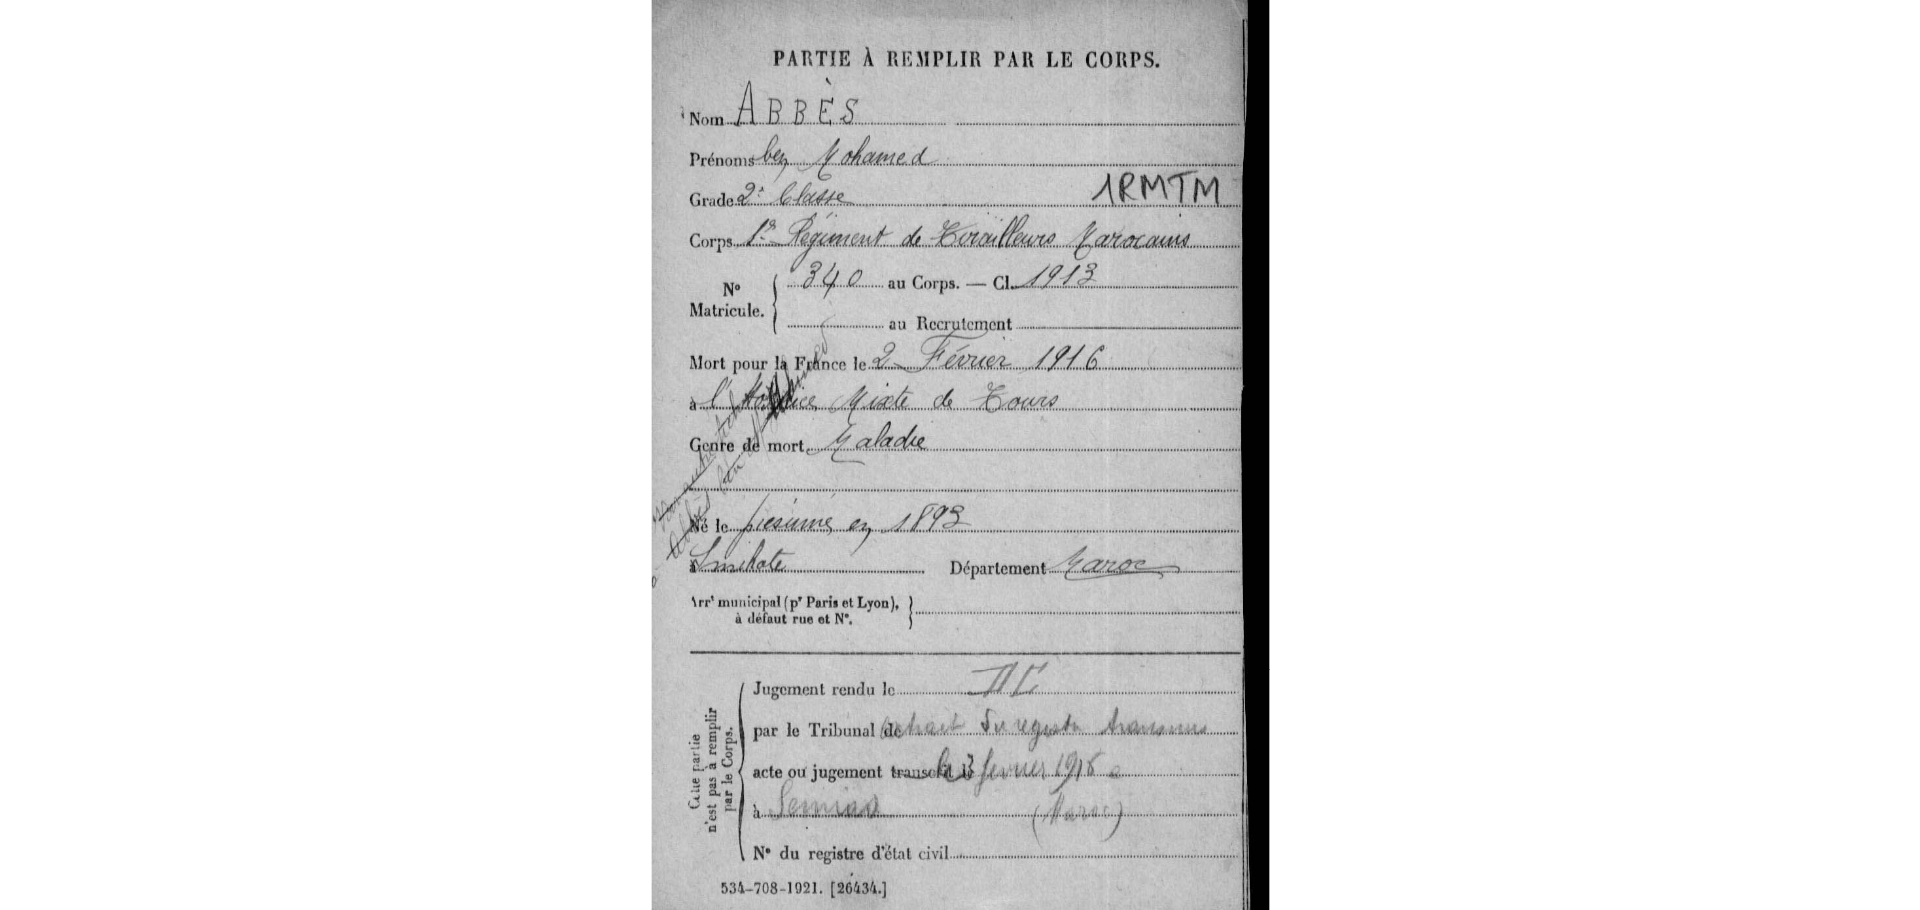 PARTIE À REMPLIR PAR LE CORPS.
Nom ABBÈS
Prénoms ben Mohamed
Grade 2e Classe 1RMTM
Corps 1er Régiment de Tirailleurs Marocains
N° Matricule. 340 au Corps. — Cl. 1913
au Recrutement
Mort pour la France le 2 Février 1916
à l'Hospice Mixte de Tours
Genre de mort Maladie
Né le présumé en 1893
à Smikate Département Maroc
Arrt municipal (pr Paris et Lyon),
à défaut rue et N°.
Cette partie
n'est pas à remplir
par le Corps.
Jugement rendu le
par le Tribunal de extrait du registre transmis
acte ou jugement transcrit le février 1918
à (Maroc)
N° du registre d'état civil
534-708-1921. [26434.]